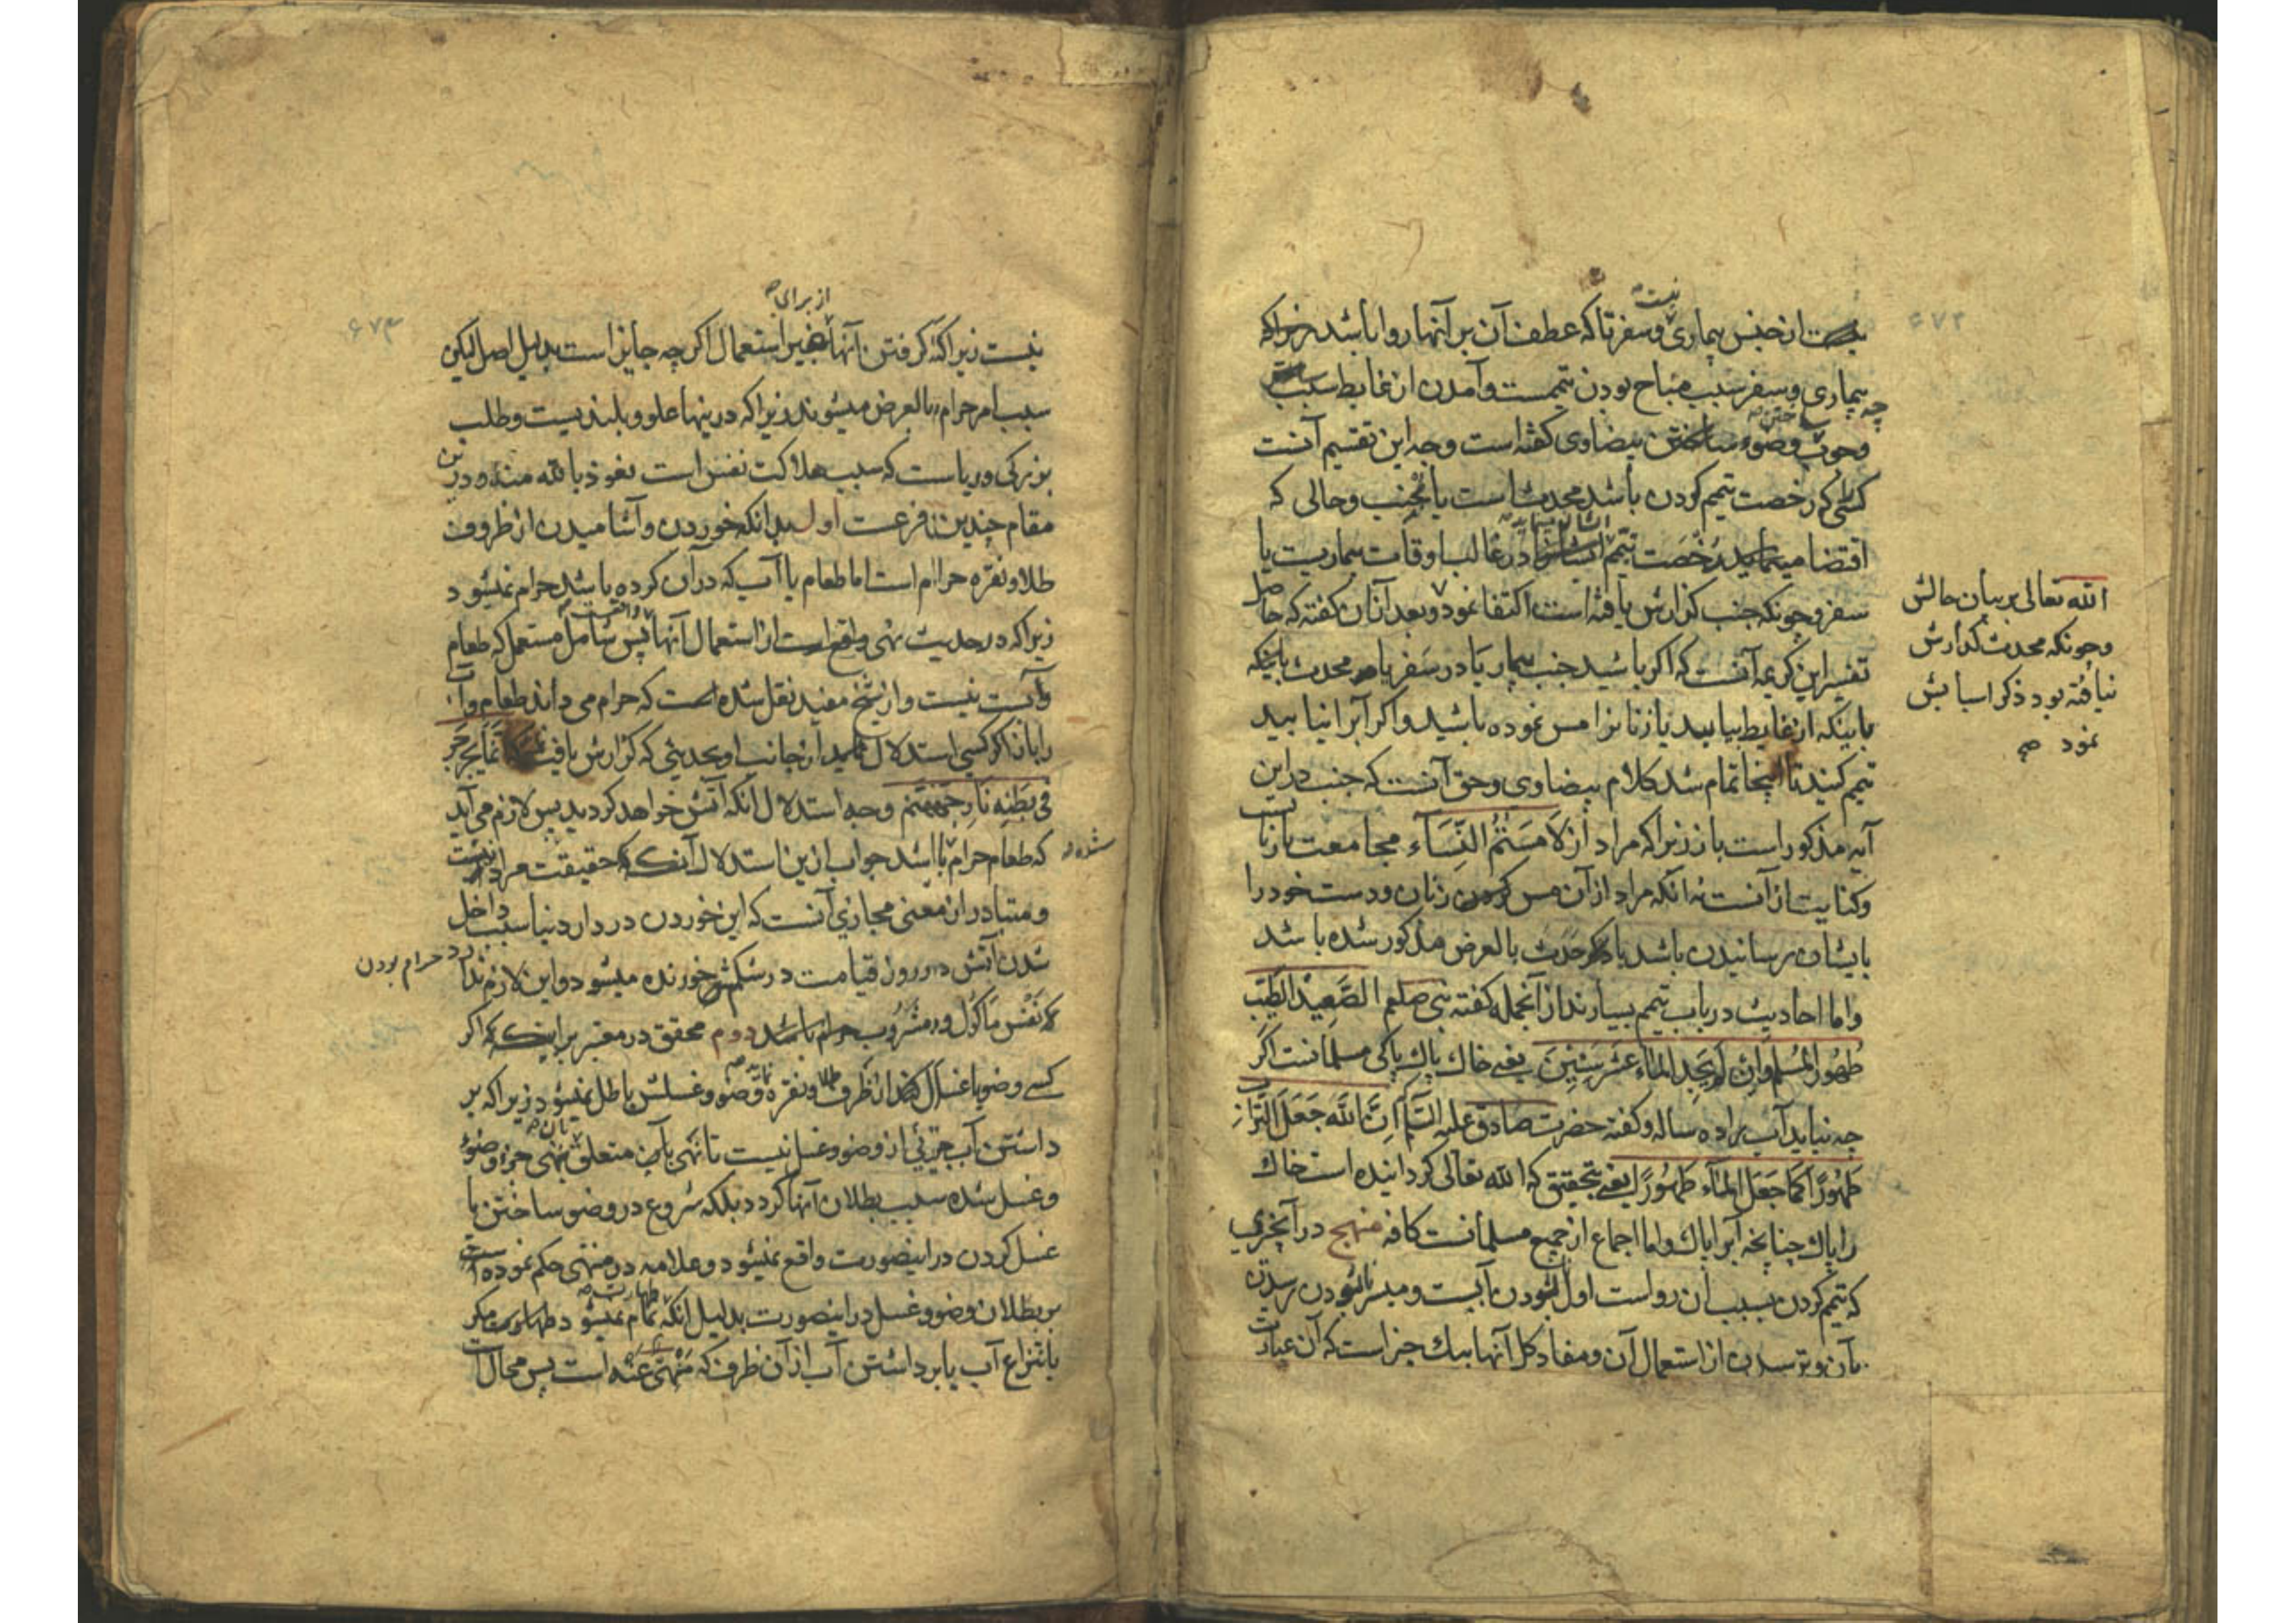 ۶۷۲
نیست
از جنس بیماری و سفر تا که عطف آن بر آنها روا باشد
بیماری و سفر سبب مباح بودن تیممست و آمدن از غایط سبب
چه
وجوب وضوء ساختن بیضاوی گفته است وجه این تقسیم آنست
کسی که رخصت تیمم کردن باشد محدث است یا جنب و حالی که
اقتضا مینماید رخصت تیمم در غالب اوقات بیماریت یا
سفر و چونکه جنب گزارش یافته است اکتفا نمود و بعد از آن گفته که حاصل
تفسیر این کریمه آنست که اگر باشید جنب بیمار یا در سفر یا محدث باینکه
باینکه از غایط بیایید یا زنانرا مس نموده باشید و اگر آبرا نیابید
تیمم کنید تا اینجا تمام شد کلام بیضاوی و حق آنست که جنب در این
آیه مذکور است باز زیرا که مراد از لَامَسْتُمُ النِّسَاءَ مجامعت با زنانست
و کنایت از آنست نه آنکه مراد از آن مس کردن زنان و دست خود را
بایشان رسانیدن باشد یا که حدث بالعرض مذکور شده باشد
و اما احادیث در باب تیمم بسیارند از آنجمله گفته نبی صلعم الصَّعِیْدُ الطَّیِّب
طَهُورُ الْمُسْلِمِ وَاِنْ لَمْ یَجِدِ الْمَاءَ عَشَرَ سِنِیْنَ یعنی خاک پاک پاکی مسلمانست اگر
چه نیابد آب را ده ساله و گفته حضرت صادق علیه السَّلام اِنَّ اللّٰهَ جَعَلَ التُّرَابَ
طَهُوْرًا کَمَا جَعَلَ الْمَاءَ طَهُوْرًا یعنی بتحقیق که الله تعالی گردانیده است خاک
را پاک چنانچه آبرا پاک و اما اجماع از جمیع مسلمانست کافه منهج در آنچیزی
که تیمم کردن بسبب آن رواست اول نبودن آبست و میسر نبودن رسیدن
بآن و ترسیدن از استعمال آن و مفاد کل آنها بیک چیز است که آن عبارت
الله تعالی بر بیان حالش
و چونکه محدث گذارش
نیافته بود ذکر اسبابش
نمود صح
۶۷۳
از برای
نیست زیرا که گرفتن آنها استعمال اگر چه جایز است بدلیل اصل لیکن
سبب امر حرام بالعرض میشوند زیرا که درینها علو و بلندیست و طلب
بزرگی و ریاست که سبب هلاکت نفس است نعوذ بالله منه و درین
مقام چندین فرعست اول بدانکه خوردن و آشامیدن از ظروف
طلا و نقره حرام است اما طعام یا آب که در آن کرده باشد حرام نمیشود
زیرا که در حدیث نهی واقع است از استعمال آنها پس شامل مستعمل که طعام
و آبست نیست و از شیخ مفید نقل شده است که حرام می داند طعام و آب
را باز اگر کسی استدلال نماید از جانب او بحدیثی که گزارش یافت یُجَرْجِرُ
فِی بَطْنِهِ نَارَ جَهَنَّمَ وجه استدلال آنکه آتش خواهد گردید پس لازم می آید
شده
که طعام حرام باشد جواب ازین استدلال آنکه حقیقت مراد نیست
و متبادر از معنی مجازی آنست که این خوردن در دار دنیا سبب داخل
شدن آتش در روز قیامت در شکم خورنده میشود و این لازم ندارد حرام بودن
نَفْس مَاکُول و مَشْرُوب دوم محقق در معتبر برینست که اگر
کسی وضو یا غسل کند از ظرف طلا و نقره وضو و غسلش باطل نمیشود زیرا که بر
داشتن آب جزئی از وضو و غسل نیست تا نهی بآن متعلق جزء وضوء
و غسل شده سبب بطلان آنها گردد بلکه شروع در وضو ساختن یا
غسل کردن در اینصورت واقع نمیشود و علامه در منتهی حکم نموده است
بر بطلان وضو و غسل در اینصورت بدلیل آنکه تمام نمیشود طهارت مگر
بانتزاع آب یا برداشتن آب از آن ظرف که مَنْهِی عَنْه است پس محال